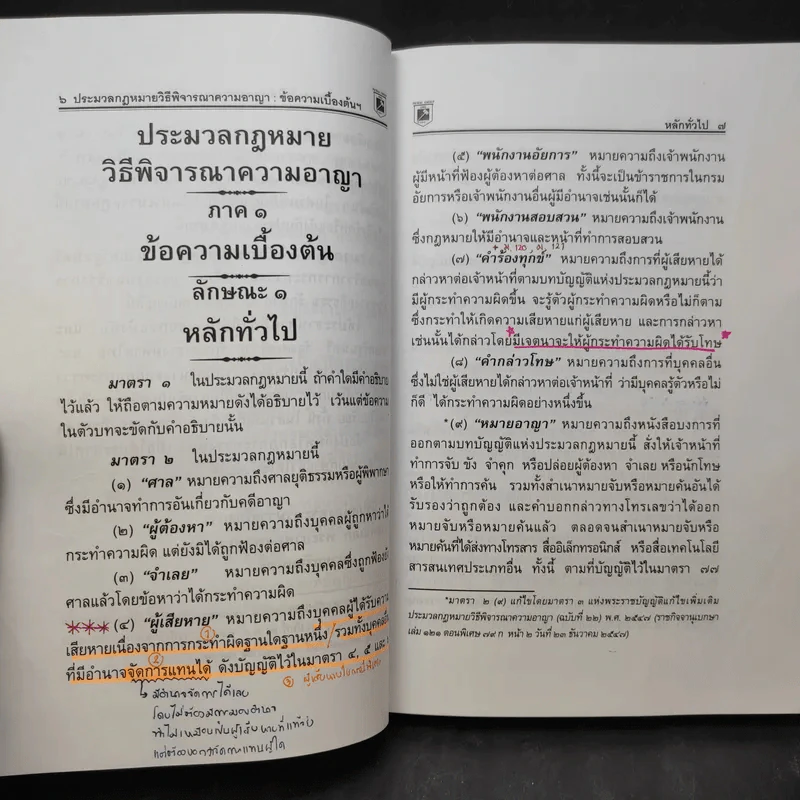 ๖ ประมวลกฎหมายวิธีพิจารณาความอาญา : ข้อความเบื้องต้นฯ
ประมวลกฎหมาย
วิธีพิจารณาความอาญา
ภาค ๑
ข้อความเบื้องต้น
ลักษณะ ๑
หลักทั่วไป
มาตรา ๑ ในประมวลกฎหมายนี้ ถ้าคำใดมีคำอธิบาย
ไว้แล้ว ให้ถือตามความหมายดังได้อธิบายไว้ เว้นแต่ข้อความ
ในตัวบทจะขัดกับคำอธิบายนั้น
มาตรา ๒ ในประมวลกฎหมายนี้
(๑) “ศาล” หมายความถึงศาลยุติธรรมหรือผู้พิพากษา
ซึ่งมีอำนาจทำการอันเกี่ยวกับคดีอาญา
(๒) “ผู้ต้องหา” หมายความถึงบุคคลผู้ถูกหาว่าได้
กระทำความผิด แต่ยังมิได้ถูกฟ้องต่อศาล
(๓) “จำเลย” หมายความถึงบุคคลซึ่งถูกฟ้องยัง
ศาลแล้วโดยข้อหาว่าได้กระทำความผิด
*** (๔) “ผู้เสียหาย” หมายความถึงบุคคลผู้ได้รับความ
①
เสียหายเนื่องจากการกระทำผิดฐานใดฐานหนึ่ง/รวมทั้งบุคคลอื่น
②
ที่มีอำนาจจัดการแทนได้ ดังบัญญัติไว้ในมาตรา ๔, ๕ และ
③
มีอำนาจจัดการได้เลย
หลักทั่วไป ๗
(๕) “พนักงานอัยการ” หมายความถึงเจ้าพนักงาน
ผู้มีหน้าที่ฟ้องผู้ต้องหาต่อศาล ทั้งนี้จะเป็นข้าราชการในกรม
อัยการหรือเจ้าพนักงานอื่นผู้มีอำนาจเช่นนั้นก็ได้
(๖) “พนักงานสอบสวน” หมายความถึงเจ้าพนักงาน
ซึ่งกฎหมายให้มีอำนาจและหน้าที่ทำการสอบสวน
+ ม. 120 ม. 121
(๗) “คำร้องทุกข์” หมายความถึงการที่ผู้เสียหายได้
กล่าวหาต่อเจ้าหน้าที่ตามบทบัญญัติแห่งประมวลกฎหมายนี้ว่า
มีผู้กระทำความผิดขึ้น จะรู้ตัวผู้กระทำความผิดหรือไม่ก็ตาม
ซึ่งกระทำให้เกิดความเสียหายแก่ผู้เสียหาย และการกล่าวหา
เช่นนั้นได้กล่าวโดยมีเจตนาจะให้ผู้กระทำความผิดได้รับโทษ
(๘) “คำกล่าวโทษ” หมายความถึงการที่บุคคลอื่น
ซึ่งไม่ใช่ผู้เสียหายได้กล่าวหาต่อเจ้าหน้าที่ ว่ามีบุคคลรู้ตัวหรือไม่
ก็ดี ได้กระทำความผิดอย่างหนึ่งขึ้น
*(๙) “หมายอาญา” หมายความถึงหนังสือบงการที่
ออกตามบทบัญญัติแห่งประมวลกฎหมายนี้ สั่งให้เจ้าหน้าที่
ทำการจับ ขัง จำคุก หรือปล่อยผู้ต้องหา จำเลย หรือนักโทษ
หรือให้ทำการค้น รวมทั้งสำเนาหมายจับหรือหมายค้นอันได้
รับรองว่าถูกต้อง และคำบอกกล่าวทางโทรเลขว่าได้ออก
หมายจับหรือหมายค้นแล้ว ตลอดจนสำเนาหมายจับหรือ
หมายค้นที่ได้ส่งทางโทรสาร สื่ออิเล็กทรอนิกส์ หรือสื่อเทคโนโลยี
สารสนเทศประเภทอื่น ทั้งนี้ ตามที่บัญญัติไว้ในมาตรา ๗๗
*มาตรา ๒ (๙) แก้ไขโดยมาตรา ๓ แห่งพระราชบัญญัติแก้ไขเพิ่มเติม
ประมวลกฎหมายวิธีพิจารณาความอาญา (ฉบับที่ ๒๒) พ.ศ. ๒๕๔๗ (ราชกิจจานุเบกษา
เล่ม ๑๒๑ ตอนพิเศษ ๗๙ ก หน้า ๒ วันที่ ๒๓ ธันวาคม ๒๕๔๗)